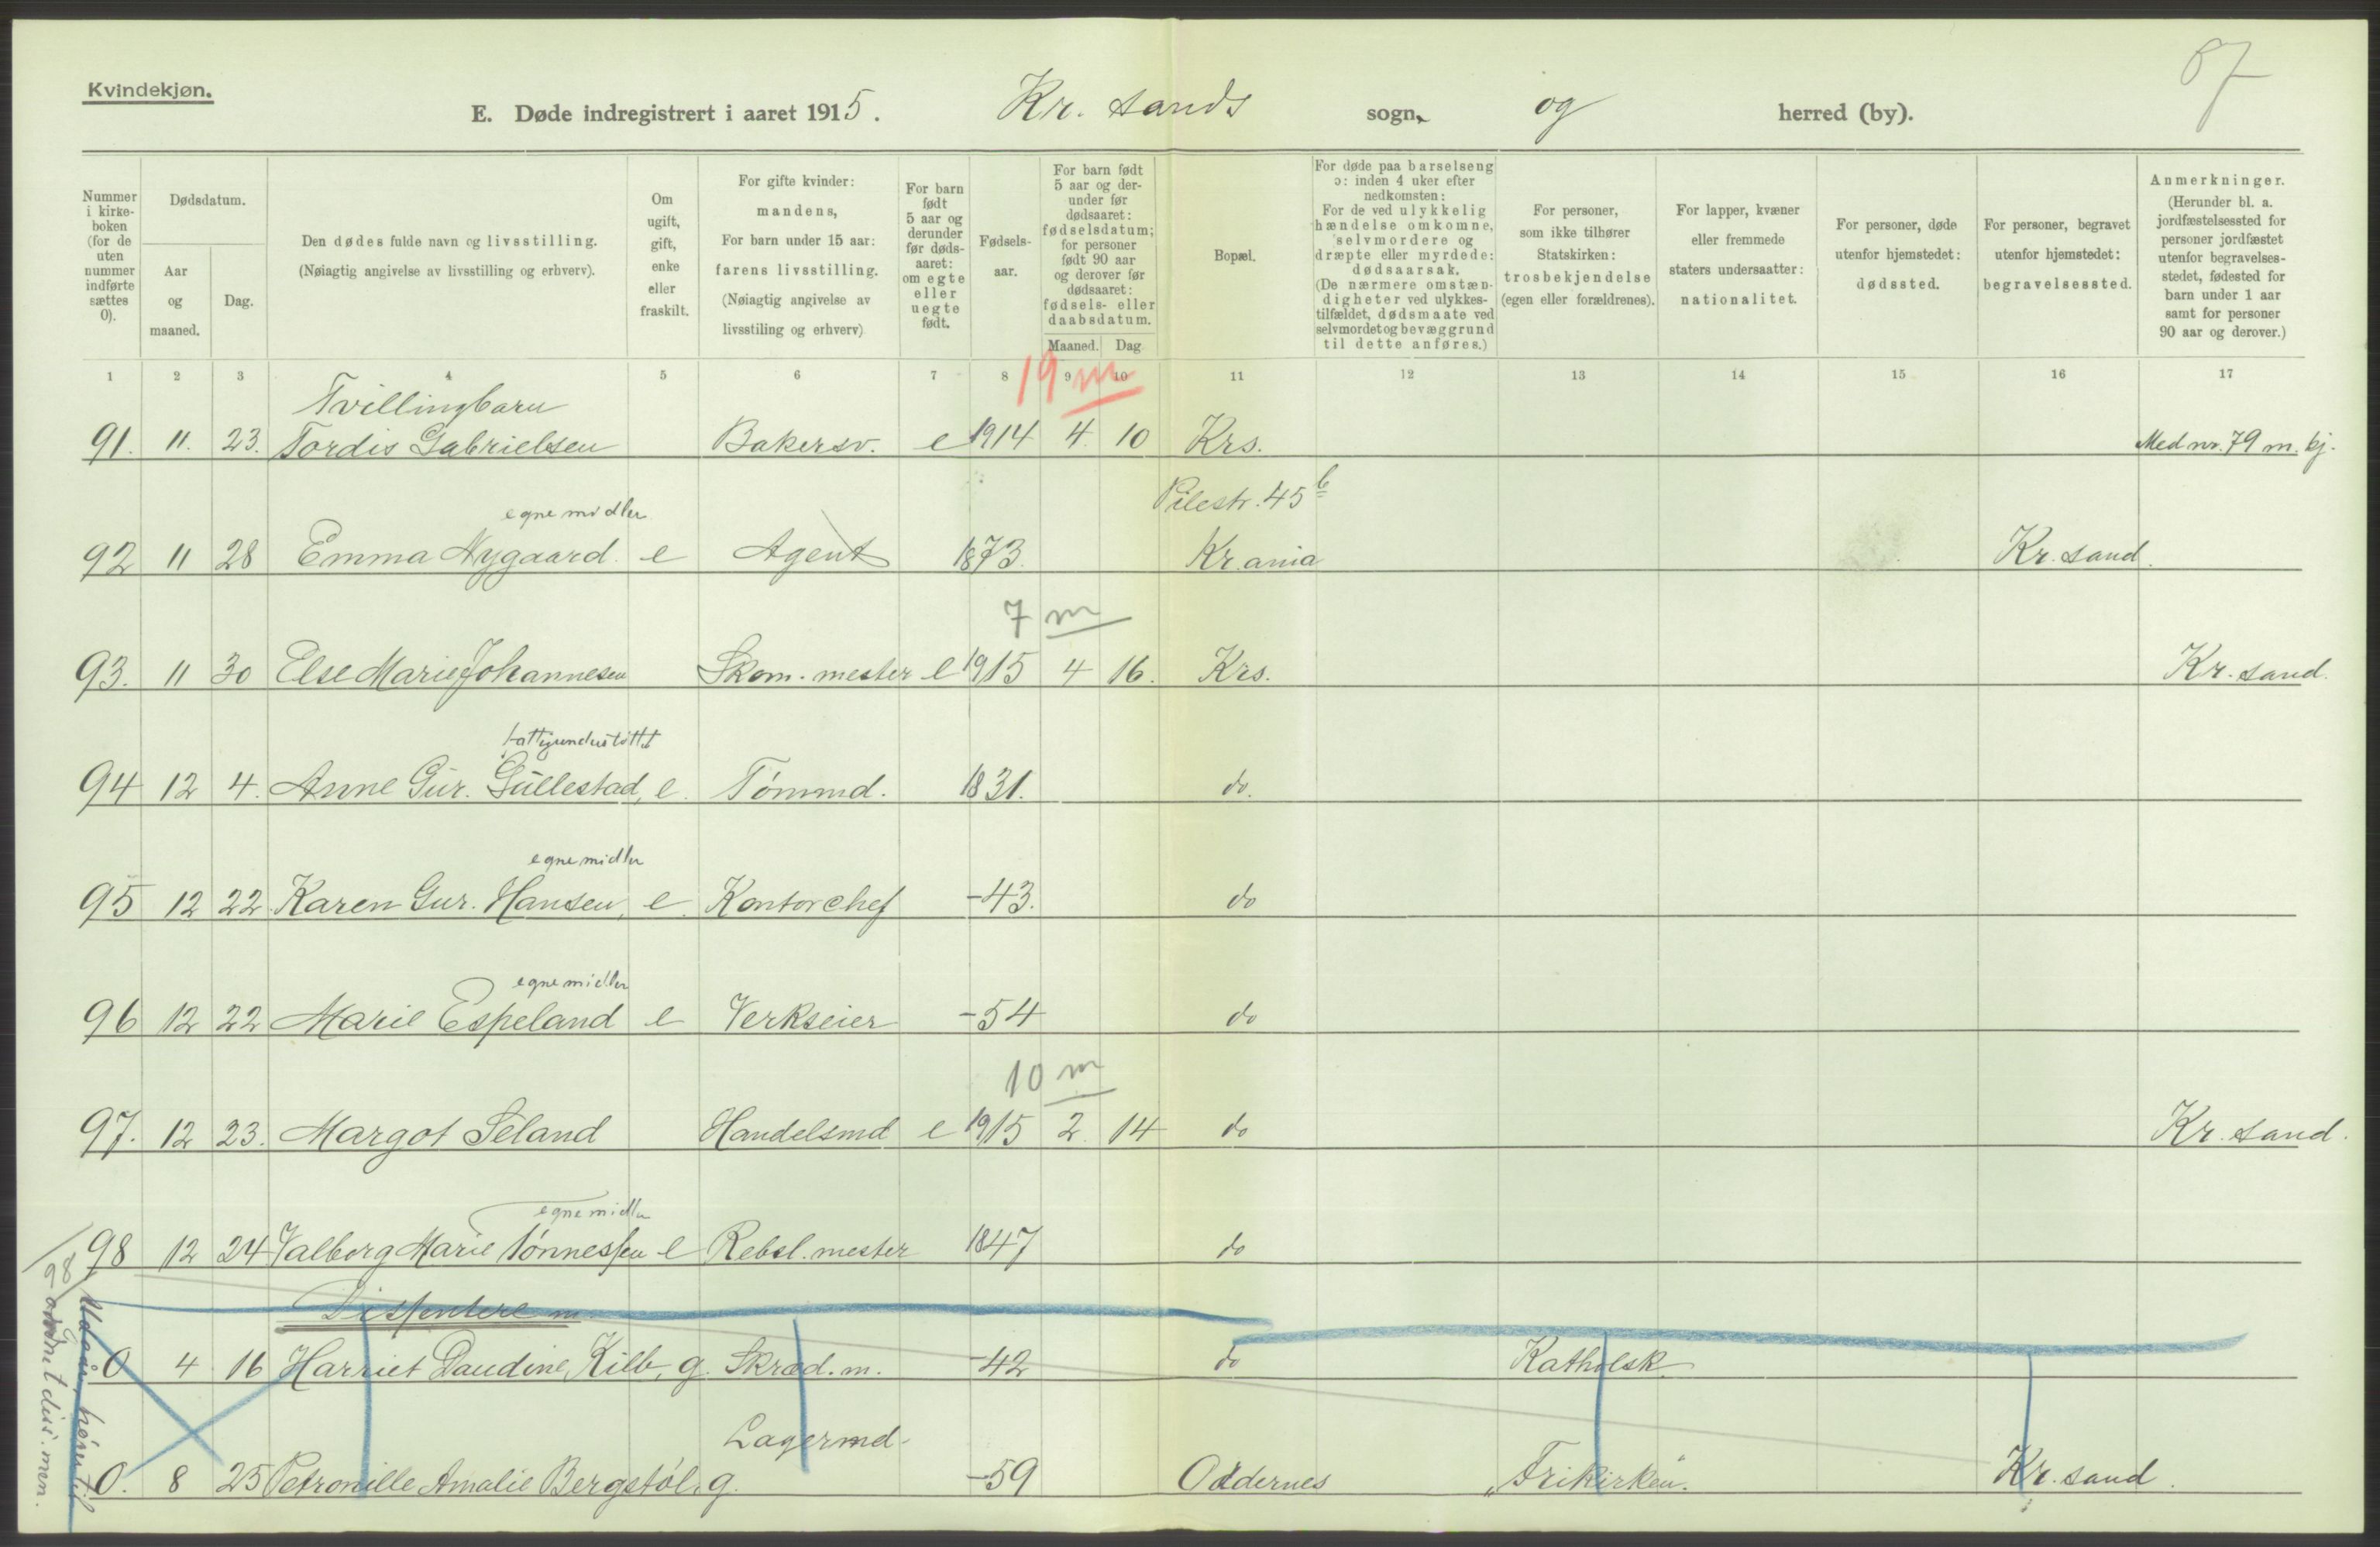 67
Kvindekjøn.
E. Døde indregistrert i aaret 1915. Kr. sands sogn, og herred (by).
Nummer i kirkeboken (for de uten nummer indførte sættes 0).
Dødsdatum.
Aar og maaned.
Dag.
Den dødes fulde navn og livsstilling. (Nøiagtig angivelse av livsstilling og erhverv).
Om ugift, gift, enke eller fraskilt.
For gifte kvinder: mandens, For barn under 15 aar: farens livsstilling. (Nøiagtig angivelse av livsstiling og erhverv)
For barn født 5 aar og derunder før dødsaaret: om egte eller uegte født.
Fødselsaar.
For barn født 5 aar og derunder før dødsaaret: fødselsdatum; for personer født 90 aar og derover før dødsaaret: fødsels- eller daabsdatum.
Maaned. Dag
Bopæl.
For døde paa barselseng ɔ: inden 4 uker efter nedkomsten: For de ved ulykkelig hændelse omkomne, selvmordere og dræpte eller myrdede: dødsaarsak. (De nærmere omstændigheter ved ulykkestilfældet, dødsmaate ved selvmordet og bevæggrund til dette anføres.)
For personer, som ikke tilhører Statskirken: trosbekjendelse (egen eller forældrenes).
For lapper, kvæner eller fremmede staters undersaatter: nationalitet.
For personer, døde utenfor hjemstedet: dødssted.
For personer, begravet utenfor hjemstedet: begravelsessted.
Anmerkninger. (Herunder bl. a. jordfæstelsessted for personer jordfæstet utenfor begravelsesstedet, fødested for barn under 1 aar samt for personer 90 aar og derover.)
1 2 3 4 5 6 7 8 9 10 11 12 13 14 15 16 17
19 m
Tvillingbarn
91. 11. 23. Tordis Gabrielsen Bakersv. e 1914 4. 10 Krs. Med nr. 79 m. kj.
egne midler Pilestr. 45 b
92 11 28 Emma Nygaard. e Agent 1873. Kr.ania Kr. sand.
7 m
93. 11 30 Else Marie Johannesen Skom. mester e 1915 4 16. Krs. Kr. sand.
fattigunderstøttet
94 12 4. Anne Gur. Gullestad, e. Tømmd. 1831. do.
egne midler
95 12 22. Karen Gur. Hansen, e. Kontorchef -43. do
egne midler
96 12 22 Marie Espeland e Verkseier -54 do
10 m
97. 12 23. Margot Seland Handelsmd e 1915 2. 14 do Kr. sand.
egne midler
98 12 24 Valborg Marie Tønnessen e Rebsl. mester 1847 do
Dissentere m.
0 4 16 Harriet Daudine Kilb, g. Skræd. m. -42 do Katholsk.
Lagermd.
0. 8 25 Petronille Amalie Bergstøl. g. -59 Oddernes "Frikirken". Kr. sand.
98